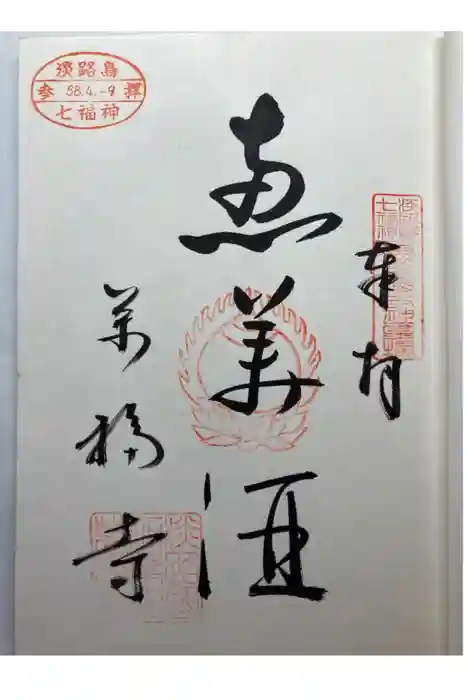 淡路島
参 58.4.-9 拝
七福神
奉拝
恵美酒
萬福寺